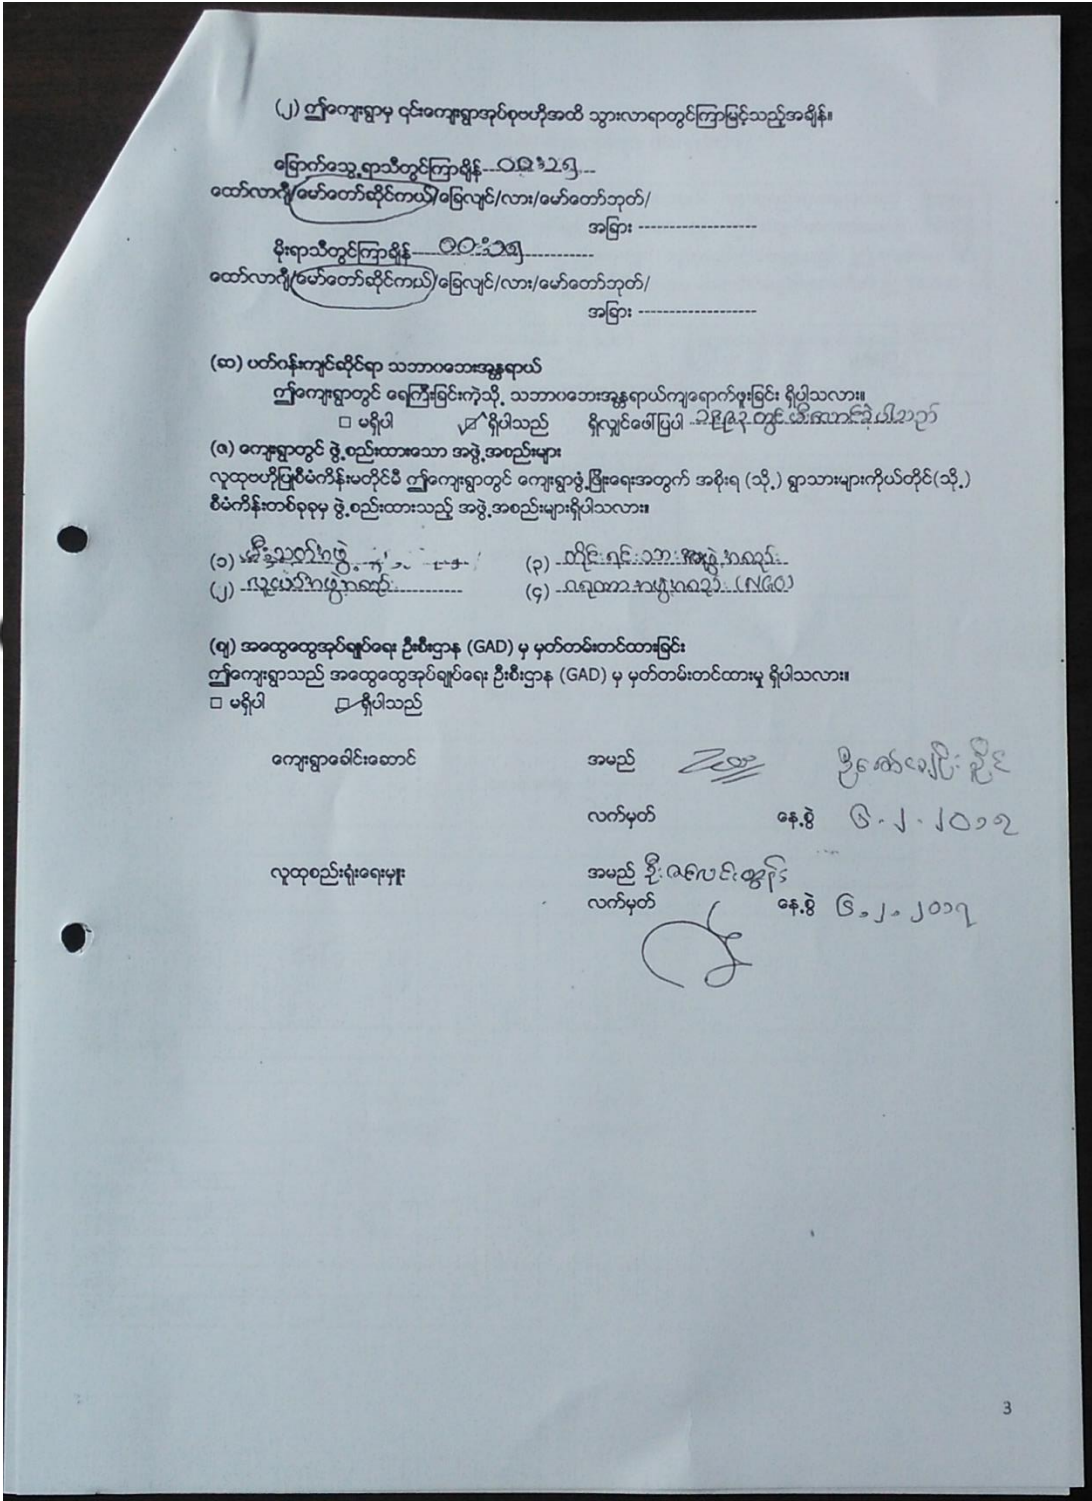 (၂) ဤကျေးရွာမှ ၎င်းကျေးရွာအုပ်စုဗဟိုအထိ သွားလာရာတွင်ကြာမြင့်သည့်အချိန်။
ခြောက်သွေ့ရာသီတွင်ကြာချိန်
ထော်လာဂျီ/မော်တော်ဆိုင်ကယ်/ခြေလျင်/လား/မော်တော်ဘုတ်/
အခြား -------------------
မိုးရာသီတွင်ကြာချိန်
ထော်လာဂျီ/မော်တော်ဆိုင်ကယ်/ခြေလျင်/လား/မော်တော်ဘုတ်/
အခြား -------------------
(ဆ) ပတ်ဝန်းကျင်ဆိုင်ရာ သဘာဝဘေးအန္တရာယ်
ဤကျေးရွာတွင် ရေကြီးခြင်းကဲ့သို့ သဘာဝဘေးအန္တရာယ်ကျရောက်ဖူးခြင်း ရှိပါသလား။
□ မရှိပါ ☑ ရှိပါသည် ရှိလျှင်ဖော်ပြပါ တွင် မီးလောင်ခဲ့ပါသည်
(ဇ) ကျေးရွာတွင် ဖွဲ့စည်းထားသော အဖွဲ့အစည်းများ
လူထုဗဟိုပြုစီမံကိန်းမတိုင်မီ ဤကျေးရွာတွင် ကျေးရွာဖွံ့ဖြိုးရေးအတွက် အစိုးရ (သို့) ရွာသားများကိုယ်တိုင်(သို့)
စီမံကိန်းတစ်ခုခုမှ ဖွဲ့စည်းထားသည့် အဖွဲ့အစည်းများရှိပါသလား။
(၁) မီးသတ်အဖွဲ့ (၃) တိုင်းရင်းသား အဖွဲ့အစည်း
(၂) လူငယ်အဖွဲ့အစည်း (၄) ပရဟိတ အဖွဲ့အစည်း (NGO)
(ဈ) အထွေထွေအုပ်ချုပ်ရေး ဦးစီးဌာန (GAD) မှ မှတ်တမ်းတင်ထားခြင်း
ဤကျေးရွာသည် အထွေထွေအုပ်ချုပ်ရေး ဦးစီးဌာန (GAD) မှ မှတ်တမ်းတင်ထားမှု ရှိပါသလား။
□ မရှိပါ ☑ ရှိပါသည်
ကျေးရွာခေါင်းဆောင် အမည်
လက်မှတ် နေ့စွဲ ၆.၂.၂၀၁၇
လူထုစည်းရုံးရေးမှူး အမည်
လက်မှတ် နေ့စွဲ ၆.၂.၂၀၁၇
3